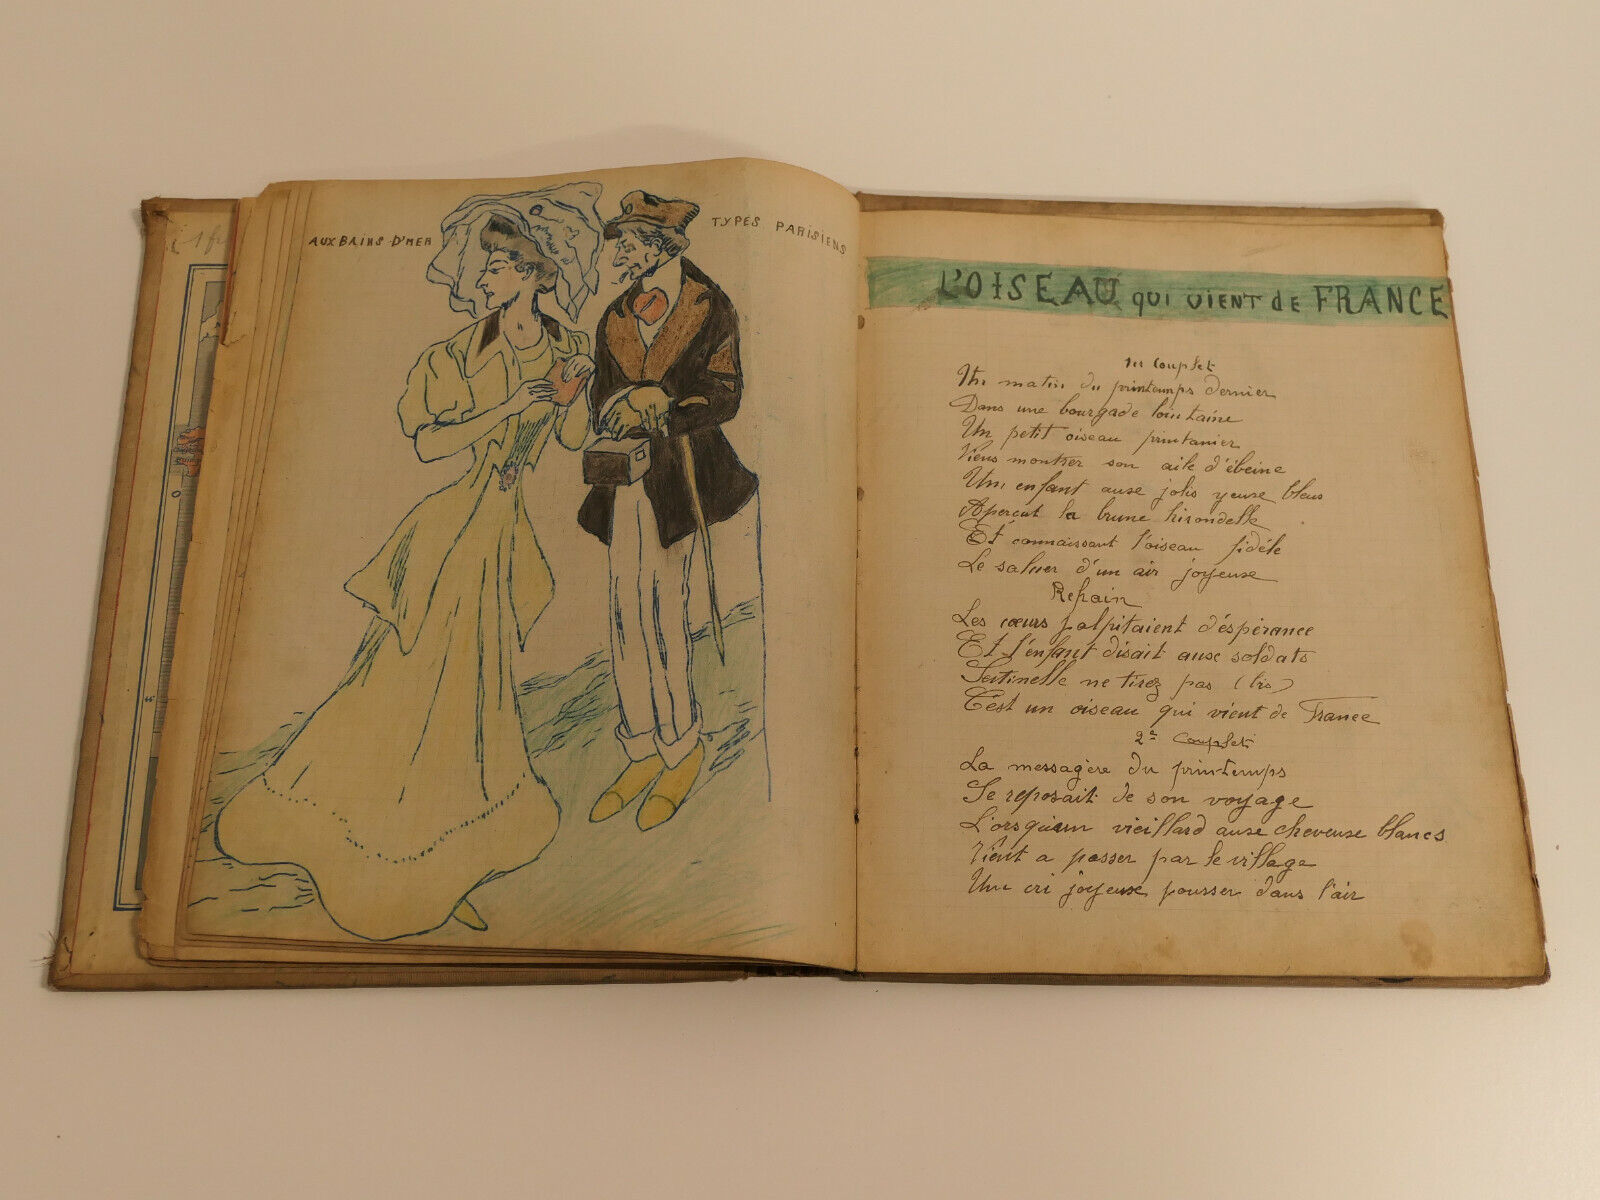 1 fr
AUX BAINS D'MER
TYPES PARISIENS
L'OISEAU QUI VIENT de FRANCE
1er Couplet
Un matin du printemps dernier
Dans une bourgade lointaine
Un petit oiseau printanier
Viens montrer son aile d'ébeine
Un enfant aux jolis yeux bleus
Aperçut la brune hirondelle
Et connaissant l'oiseau fidèle
Le saluer d'un air joyeuse
Refrain
Les cœurs palpitaient d'éspérance
Et l'enfant disait aux soldats
Sentinelle ne tirez pas (bis)
C'est un oiseau qui vient de France
2e Couplet
La messagère du printemps
Se reposait de son voyage
Lorsqu'un vieillard aux cheveux blancs
Vient a passer par le village
Un cri joyeux pousser dans l'air